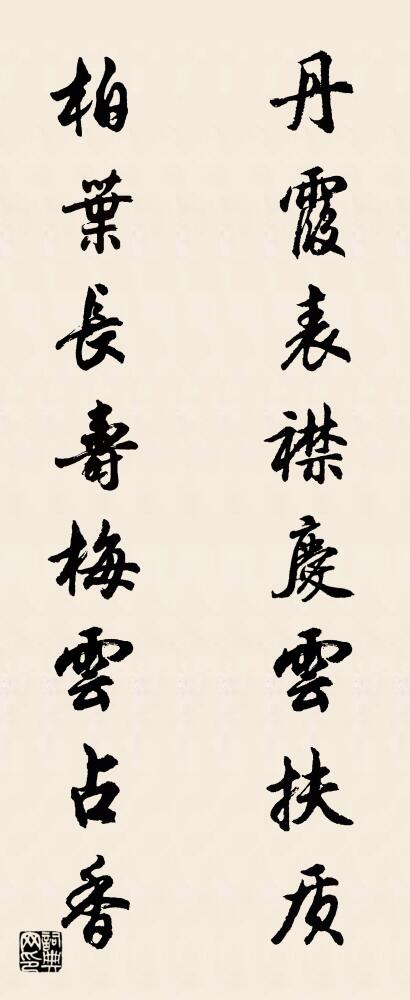 丹霞表襟慶雲扶质
柏葉長壽梅雲占香
詞典网印